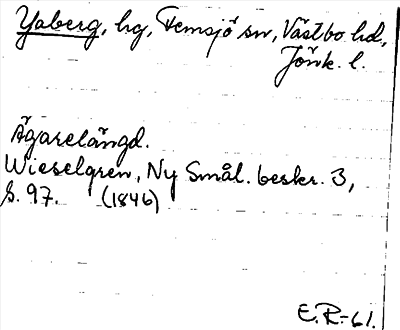 Yaberg, hg, Femsjö sn, Västbo hd,
Jönk. l.
Ägarelängd.
Wieselgren, Ny Smål. beskr. 3,
s. 97. (1846)
E.R-61.